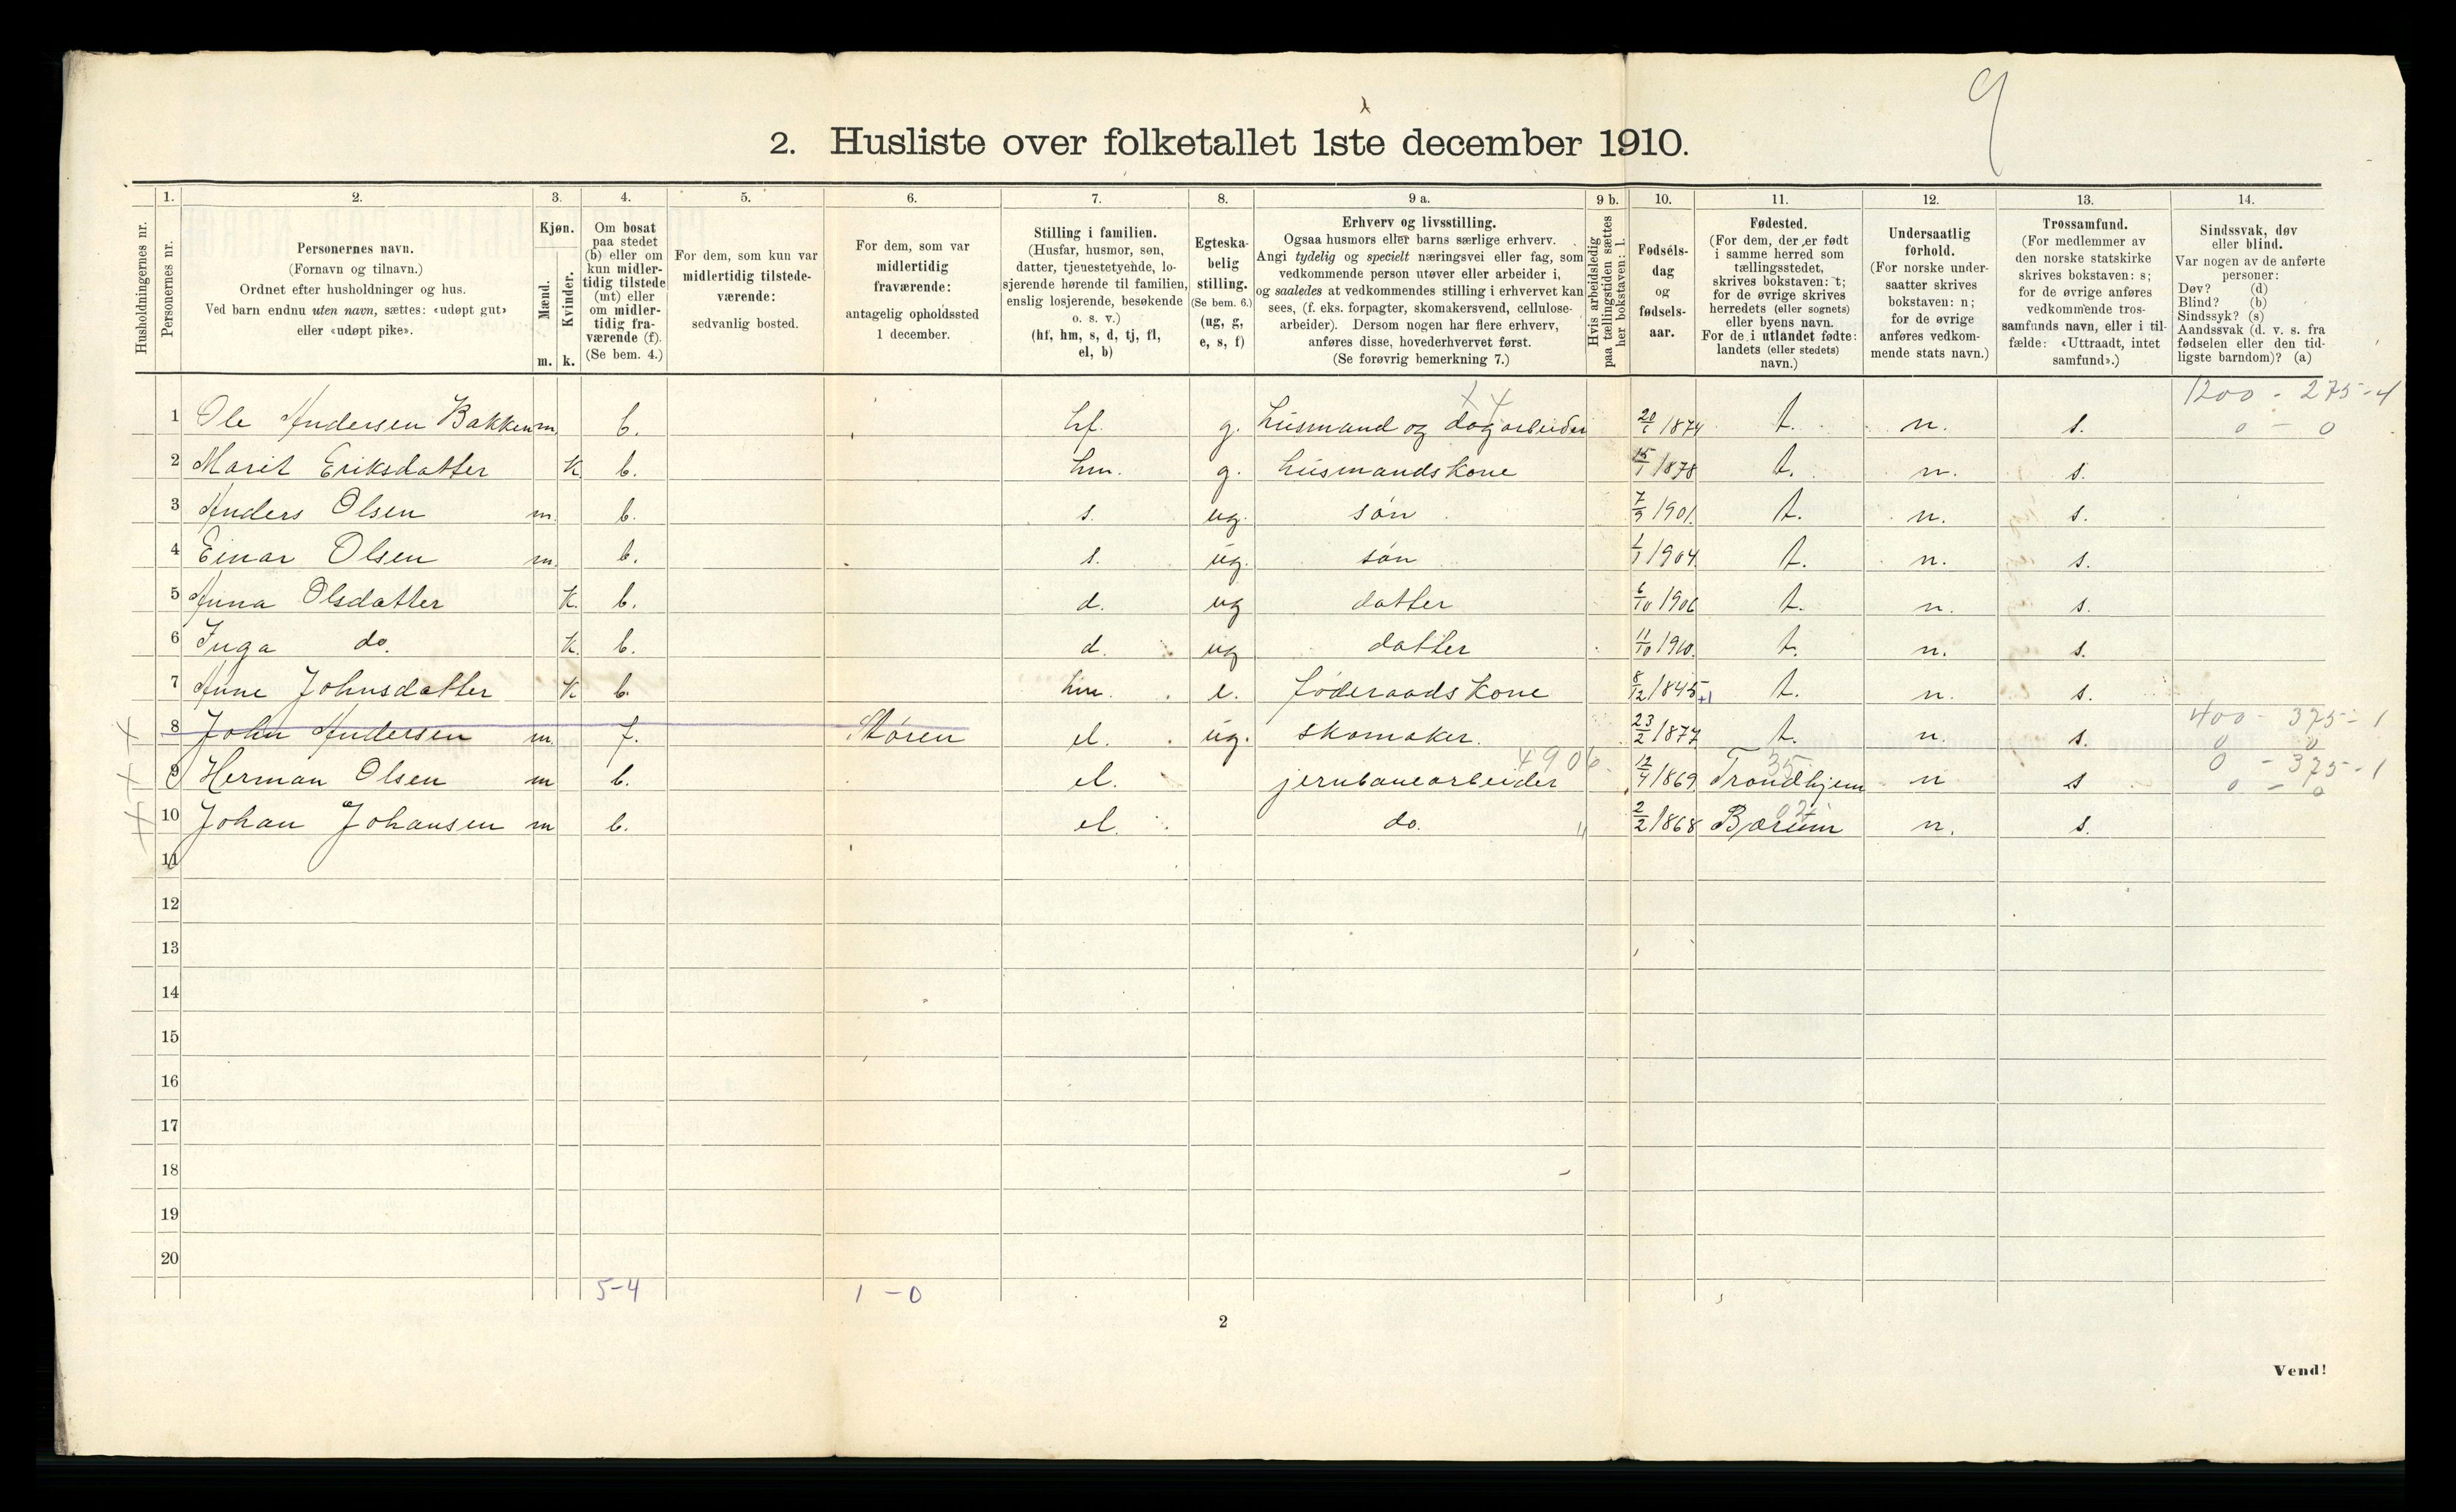 9
2. Husliste over folketallet 1ste december 1910.
1. 2. 3. 4. 5. 6. 7. 8. 9 a. 9 b. 10. 11. 12. 13. 14.
Husholdningernes nr.
Personernes nr.
Personernes navn.
(Fornavn og tilnavn.)
Ordnet efter husholdninger og hus.
Ved barn endnu uten navn, sættes: «udøpt gut»
eller «udøpt pike».
Kjøn.
Mænd.
Kvinder.
m. k.
Om bosat
paa stedet
(b) eller om
kun midler-
tidig tilstede
(mt) eller
om midler-
tidig fra-
værende (f).
(Se bem. 4.)
For dem, som kun var
midlertidig tilstede-
værende:
sedvanlig bosted.
For dem, som var
midlertidig
fraværende:
antagelig opholdssted
1 december.
Stilling i familien.
(Husfar, husmor, søn,
datter, tjenestetyende, lo-
sjerende hørende til familien,
enslig losjerende, besøkende
o. s. v.)
(hf, hm, s, d, tj, fl,
el, b)
Egteska-
belig
stilling.
(Se bem. 6.)
(ug, g,
e, s, f)
Erhverv og livsstilling.
Ogsaa husmors eller barns særlige erhverv.
Angi tydelig og specielt næringsvei eller fag, som
vedkommende person utøver eller arbeider i,
og saaledes at vedkommendes stilling i erhvervet kan
sees, (f. eks. forpagter, skomakersvend, cellulose-
arbeider). Dersom nogen har flere erhverv,
anføres disse, hovederhvervet først.
(Se forøvrig bemerkning 7.)
Hvis arbeidsledig
paa tællingstiden sættes
her bokstaven: l.
Fødsels-
dag
og
fødsels-
aar.
Fødested.
(For dem, der er født
i samme herred som
tællingsstedet,
skrives bokstaven: t;
for de øvrige skrives
herredets (eller sognets)
eller byens navn.
For de i utlandet fødte:
landets (eller stedets)
navn.)
Undersaatlig
forhold.
(For norske under-
saatter skrives
bokstaven: n;
for de øvrige
anføres vedkom-
mende stats navn.)
Trossamfund.
(For medlemmer av
den norske statskirke
skrives bokstaven: s;
for de øvrige anføres
vedkommende tros-
samfunds navn, eller i til-
fælde: «Uttraadt, intet
samfund».)
Sindssvak, døv
eller blind.
Var nogen av de anførte
personer:
Døv? (d)
Blind? (b)
Sindssyk? (s)
Aandssvak (d. v. s. fra
fødselen eller den tid-
ligste barndom)? (a)
x 4 1200 - 275-4
1 Ole Andersen Bakken m. b. hf. g. husmand og dagarbeider 20/1 1874 t. n. s. 0 - 0
2 Marit Eriksdatter K b. hm. g. husmandskone 15/1 1878 t. n. s.
3 Anders Olsen m. b. s. ug. søn 7/9 1901. t. n. s.
4 Einar Olsen m. b. s. ug. søn 1/1 1904. t. n. s.
5 Anna Olsdatter K. b. d. ug datter 6/10 1906 t. n. s.
6 Inga do. K. b. d. ug datter 11/10 1910. t. n. s.
7 Anne Johnsdatter K b. hm. e. føderaadskone 8/12 1845 +1 t. n. s.
400 - 375-1
x 8 John Andersen m. f. Støren el. ug. skomaker. 23/2 1877 t. n. s. 0 0
4906 35 0 - 375-1
x 9 Herman Olsen m b. el. jernbanearbeider 12/4 1869 Trondhjem n s 0 - 0
x 10 Johan Johansen m b. el. do. " 2/2 1868 Bærum n. s.
11
12
13
14
15
16
17
18
19
20
5-4 1-0
2
Vend!